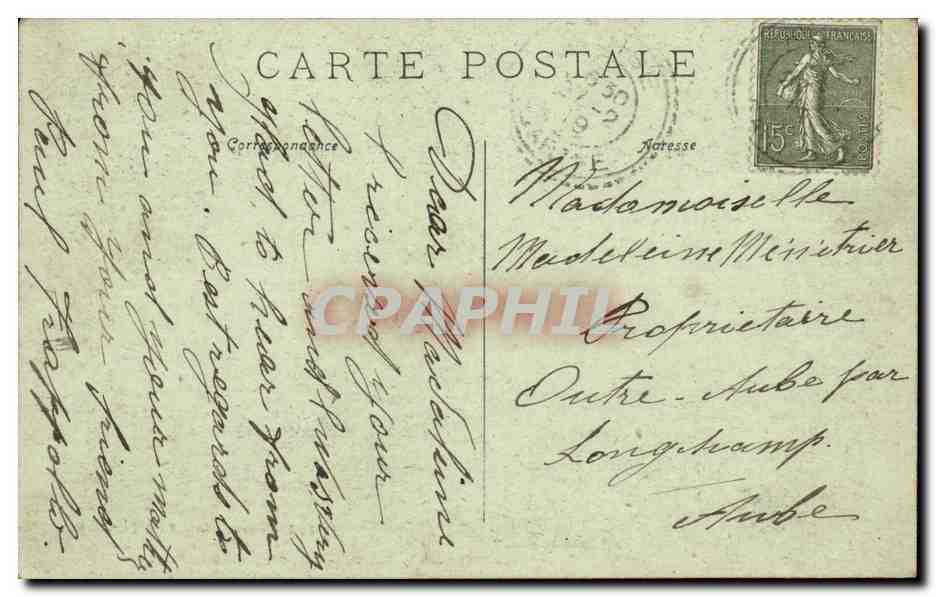 CARTE POSTALE
Correspondance
Adresse
REPUBLIQUE FRANÇAISE
15c
POSTES
Dear Madeline
I recieved your
letter and was very
glad to hear from
you. Best regards to
you and your mother
from your friend
Paul
Mademoiselle
Madeleine Ménétrier
Propriétaire
Outre-Aube par
Longchamp.
Aube
CPAPHIL